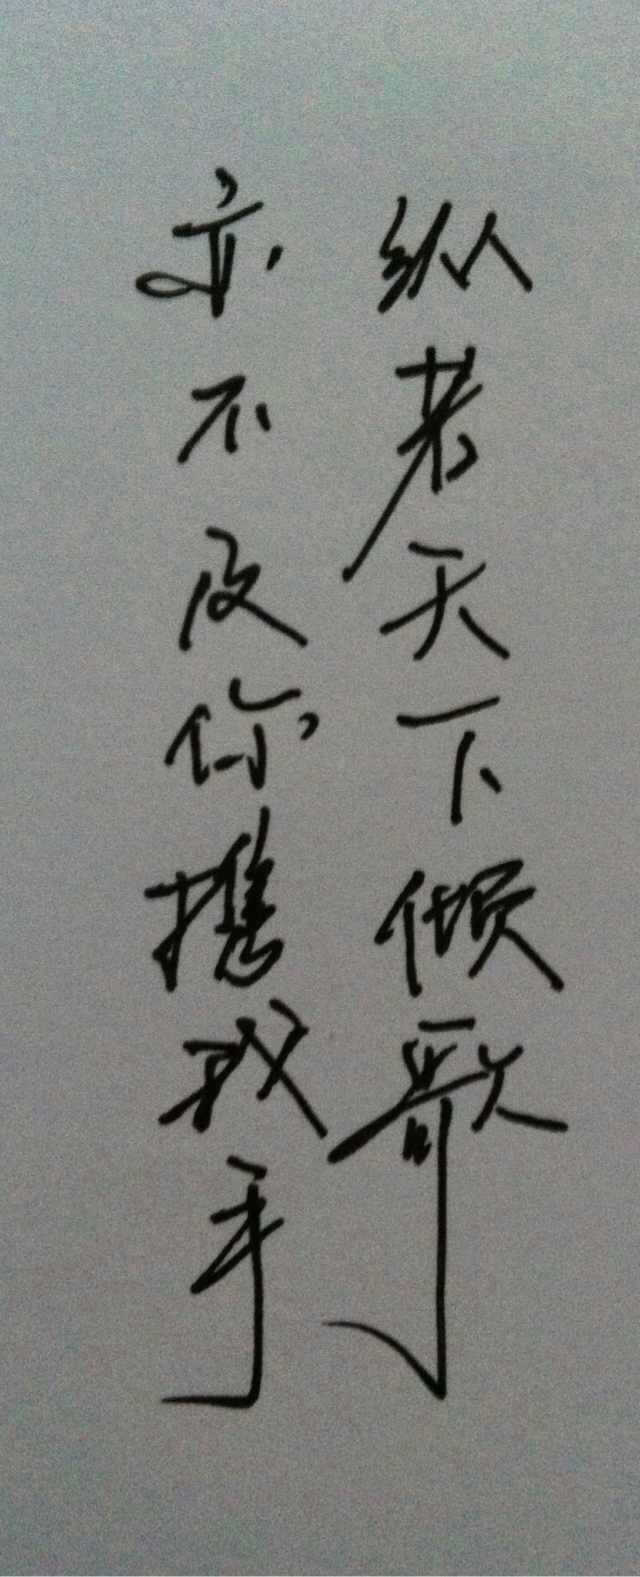 纵老天下倾歌
亦不及你携我手